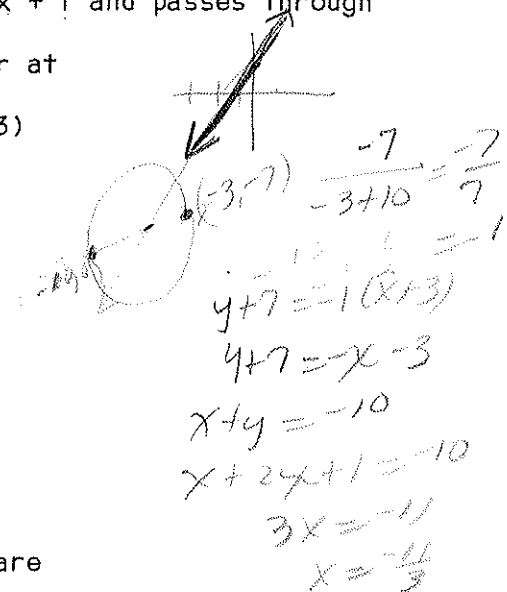 x + 1 and passes through
r at
3)
(-3,-7)
-7/-3+10 = -7/7
= -1
y+7=-1(x+3)
y+7=-x-3
x+y=-10
x+2x+1=-10
3x=-11
x=-11/3
are